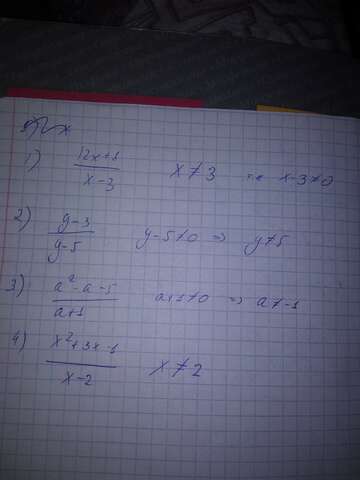 1) 12x+1 / x-3 x≠3 т.к x-3≠0
2) y-3 / y-5 y-5≠0 ⇒ y≠5
3) a²-a-5 / a+1 a+1≠0 ⇒ a≠-1
4) x²+3x-1 / x-2 x≠2